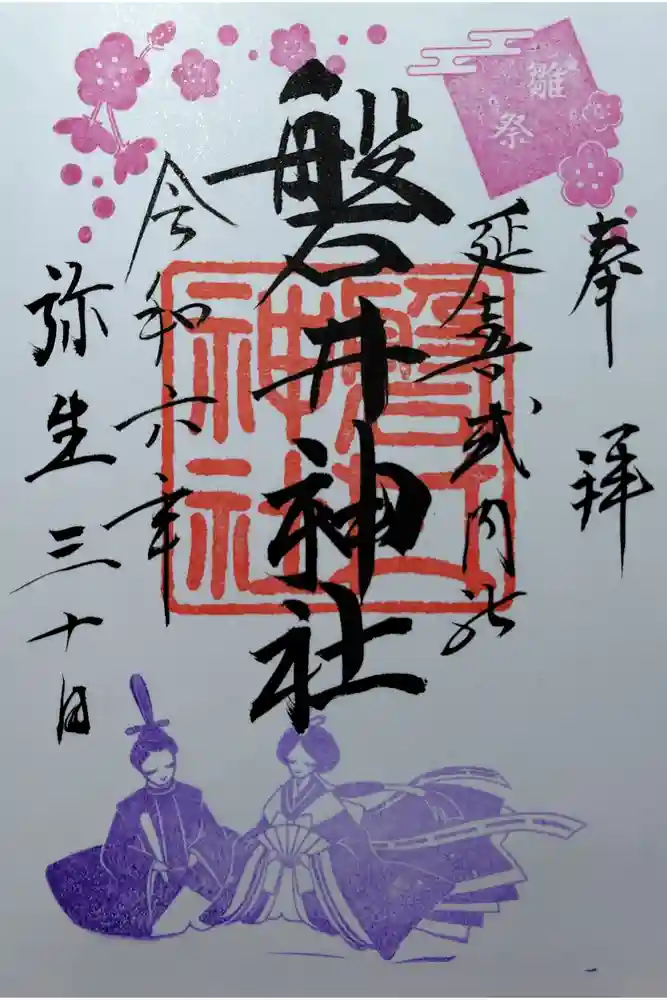 奉拝
雛祭
延喜式内社
磐井神社
磐井
神社
令和六年
弥生三十日